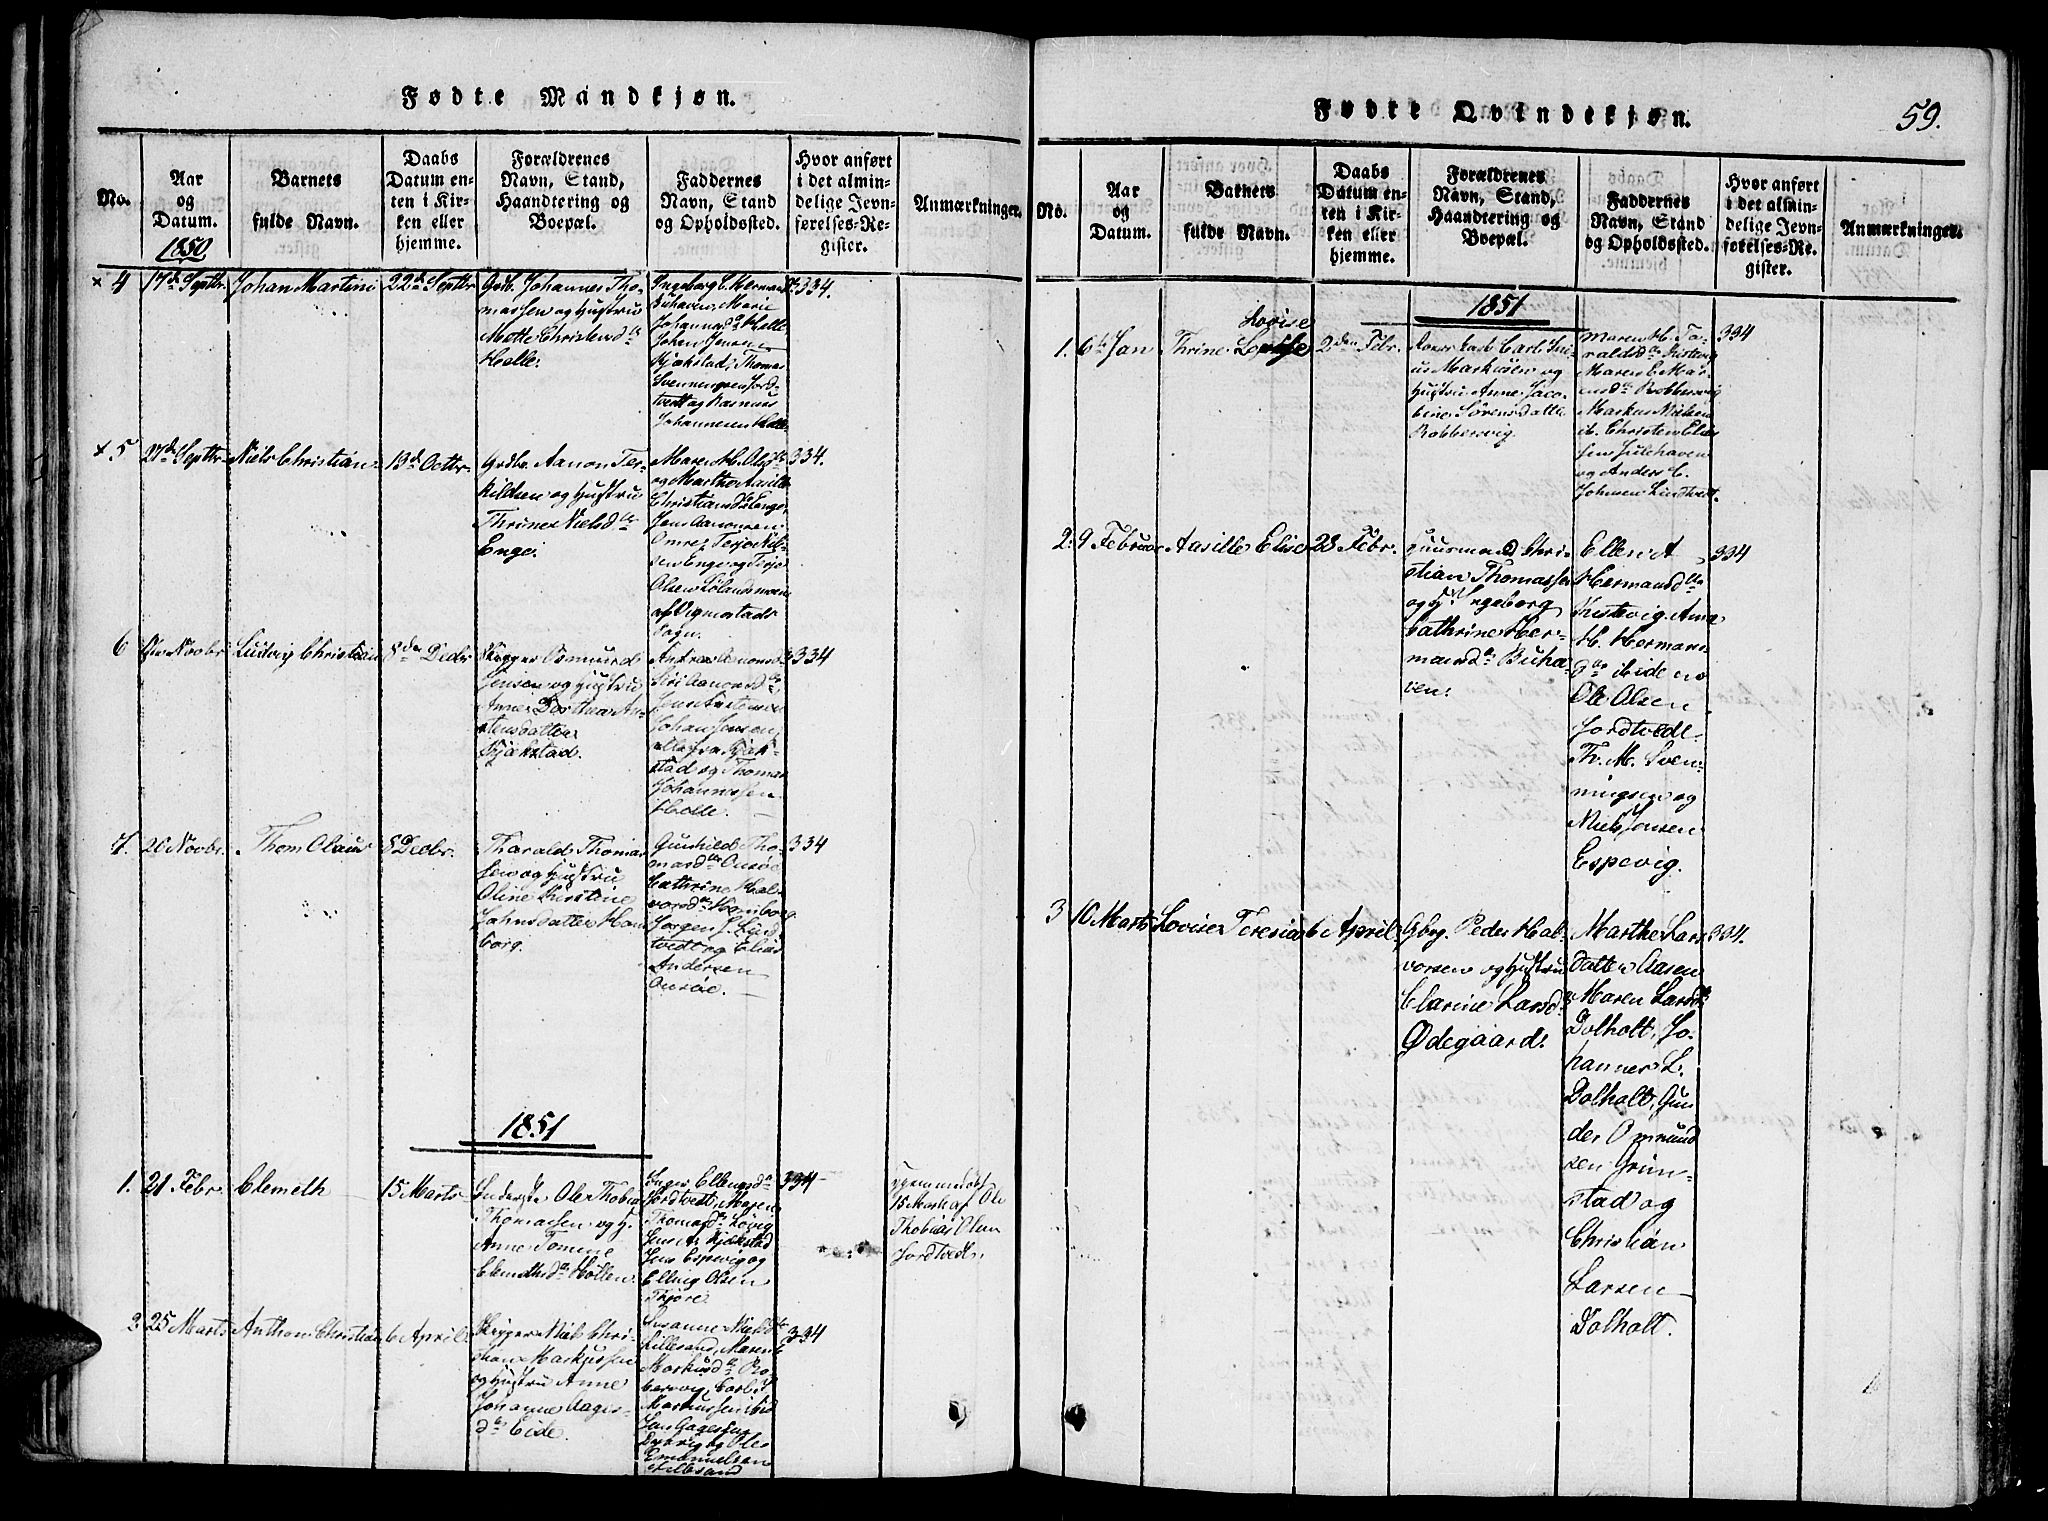 Fødte Mandkjøn.
No.
Aar
og
Datum.
1850
Barnets
fulde Navn.
Daabs
Datum en-
ten i Kir-
ken eller
hjemme.
Forældrenes
Navn, Stand,
Haandtering og
Boepæl.
Faddernes
Navn, Stand
og Opholdssted.
Hvor anført
i det almin-
delige Jevn-
førelses-Re-
gister.
Anmærkninger.
× 4
17de Septbr.
Johan Martin
22de Septbr
Grdb. Johannes Tho-
massen og Hustru
Mette Christensd.
Holle.
Ingeborg C. Herman
Buhaven, Marie
Johannsd. Holle
Johan Jensen
Kjækstad, Thomas
Svenningsen Jord-
tvedt og Rasmus
Johannesen Holle
334.
+ 5
27de Septbr.
Niels Christian
13de Octbr.
Grdbr. Aanon Ter-
kildsen og Hustru
Thrine Nielsd.
Enge.
Maren M. Olsd.
og Marthe Aasille
Christiansd. Enge,
Jens Aanonsen
Omre, Terje Nil-
sen Enge og Terje
Olsen Lølandsmoen
af Vigmostads
Sogn.
334.
6
Novbr.
Ludvig Christian
8de Decbr
Skipper Osmund
Jensen og Hustru
Anne Dorthea An-
stensdatter
Kjækstad.
Andrea Aanonsd.
Siri Aanonsd.
Jens Anstensen
Johan Jensen
alle fra Kjæk-
stad og Thomas
Johannessen
Holle
334
7.
20 Novbr.
Thom Olaus
8 Decbr.
Tharald Thomas
sen og Hustru
Oline Kirstine
Jahnsdatter Hom-
borg.
Gunhild Tho-
masd. Onsøe
Cathrine Hal-
vorsd. Homborg
Jørgen J. Lind
tvedt og Elias
Andersen
Onsøe.
334
1851
1.
21 Febr
Clemeth
15 Marts
Inderste Ole Thobias
Thomassen og H.
Anne Tomine
Clemetsd. Holten.
Inger Ellengsd.
Jordtvedt, Maren
Thomasd. Løvig
Jens A. Kjækstad
Jens Espevig og
Elling Olsen
Thjøre.
334
Hjemmedøbt
15 Marts af Ole
Thobias Olsen
Jordtvedt.
2.
25 Marts
Anthon Christian
6 April
Skipper Niels Chri-
stian Markussen
og Hustru Anne
Johanne Aages-
d. Eide.
Susanne Nielsd.
Lillesand, Maren
Markusd. Ro-
bersvig, Carl
Markussen ibid
Jan Aagessen
og Ole
Emanuelsen
Lillesand
334
Fødte Qvindekjøn.
59.
No.
Aar
og
Datum.
Barnets
fulde Navn.
Daabs
Datum en-
ten i Kir-
ken eller
hjemme.
Forældrenes
Navn, Stand,
Haandtering og
Boepæl.
Faddernes
Navn, Stand
og Opholdssted.
Hvor anført
i det almin-
delige Jevn-
førelses-Re-
gister.
Anmærkninger.
1851
1.
6te Jan
Lovise
Thrine
2den Febr.
Carl Juli-
us Markusen og
Hustru Anne Jaco-
bine Sørensdatter
Robbersvig.
Maren H. Ta-
raldsd. Kistevig
Maren E. Mar-
cusd. Robbersvig
Markus Nielsen
ib. Christen Elias
sen Julehaven
og Anders C.
Johnsen Lindtvedt.
334
2.
9 Februar
Aasille Elise
23 Febr.
Huusmand Chri-
stian Thomassen
og H. Ingeborg
Cathrine Her-
mansd. Buha-
ven.
Ellen A
Hermansd.
Kistevig, Anna
H. Hermans
d. ibidem
Ole Olsen
Jordtvedt
Th. M. Sven-
ningsen og
Niels Jensen
Espevig.
334
3
10 Marts
Lovise Teresia
6 April
Gbrg. Peder Hal-
vorsen og Hustru
Clarine Larsd.
Ødegaard.
Marthe Lars
datter Aasen
Maren Larsd.
Dolholt, Jo-
hannes L.
Dolholt, Gun
der Omund
sen Grim-
stad og
Christian
Larsen
Dolholt.
334.